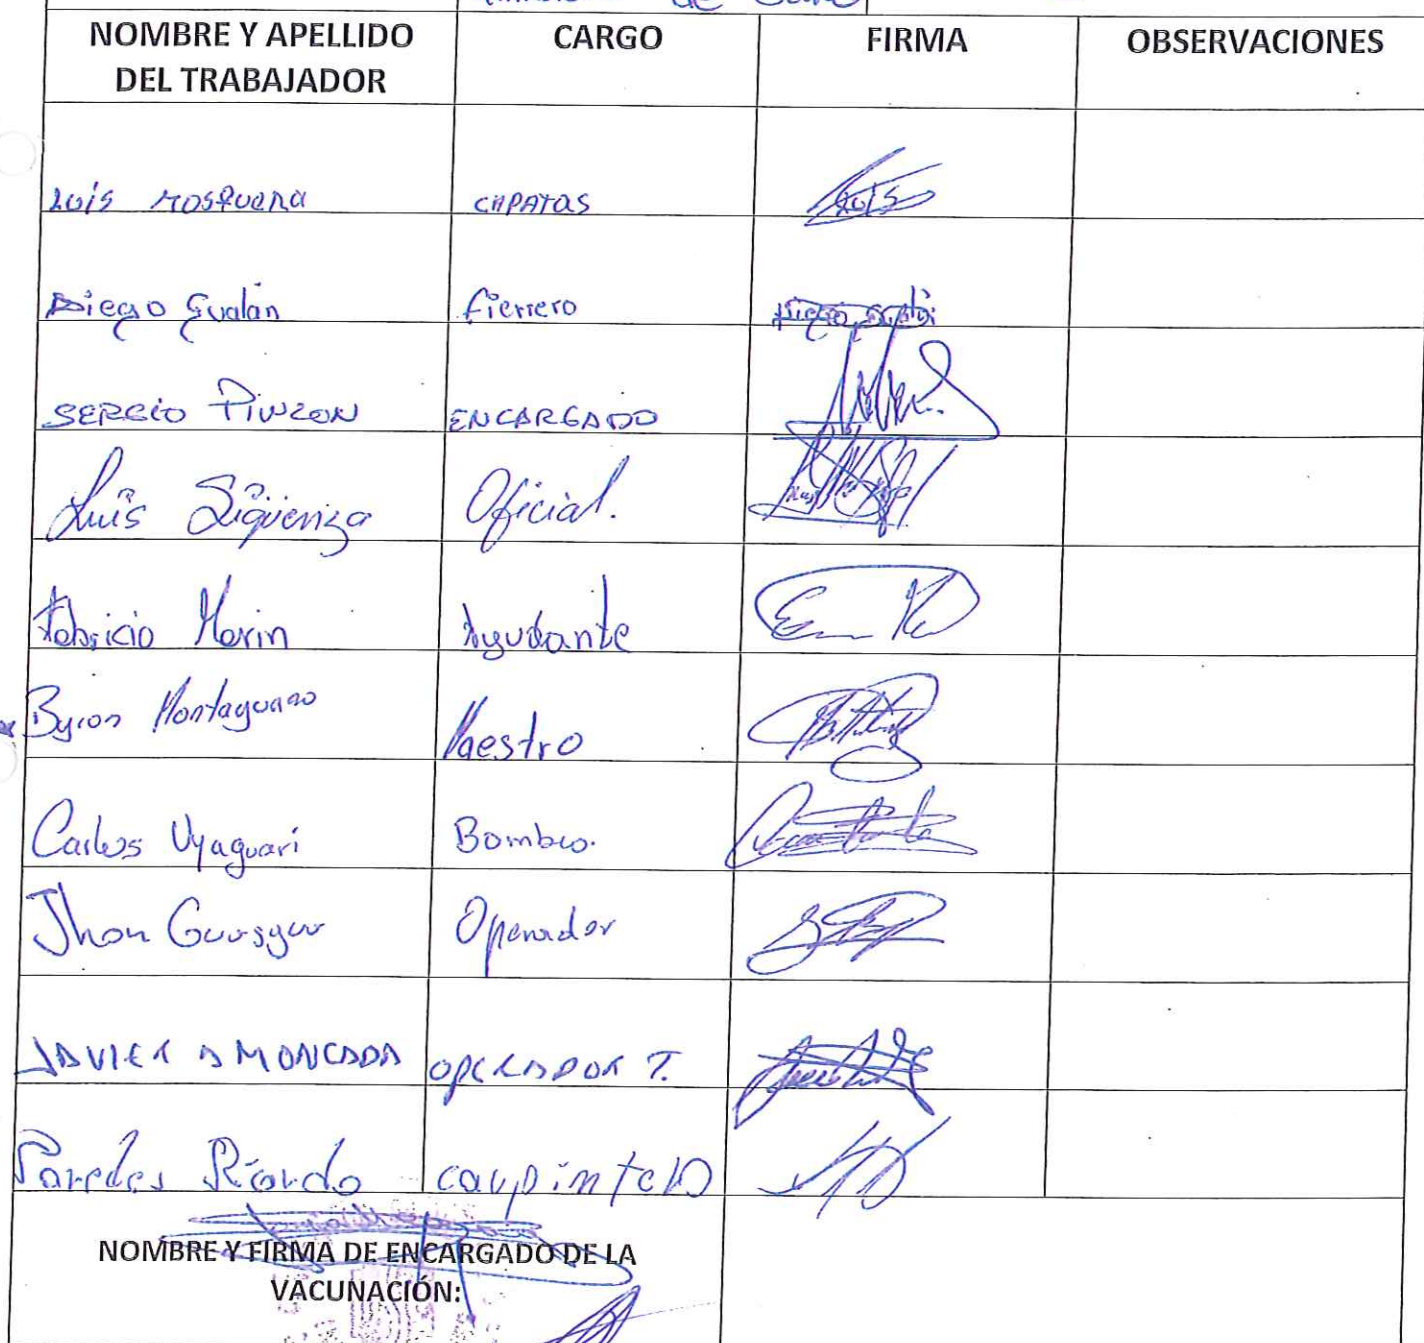 de
NOMBRE Y APELLIDO DEL TRABAJADOR CARGO FIRMA OBSERVACIONES
Luis Mosquera CAPATAS Luis
Diego Gualán fierrero
SERGIO PINZON ENCARGADO
Luis Sigüenza Oficial.
Fabricio Morin Ayudante
Byron Montaguano Maestro
Carlos Uyaguari Bombeo.
Jhon Operador
JAVIER A MONCADA OPERADOR T.
Paredes Ricardo carpintero
NOMBRE Y FIRMA DE ENCARGADO DE LA
VACUNACIÓN: